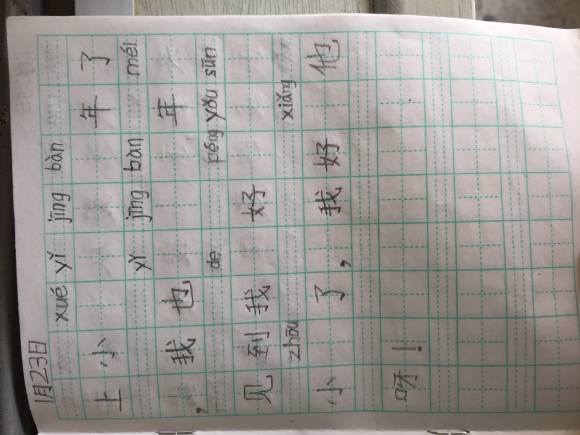 1月23日
xué yǐ jīng bàn
上小年了
yǐ jīng bàn méi
，我也年
de péng yǒu sūn
见到我好
zhōu xiǎng
小了，我好他
呀！